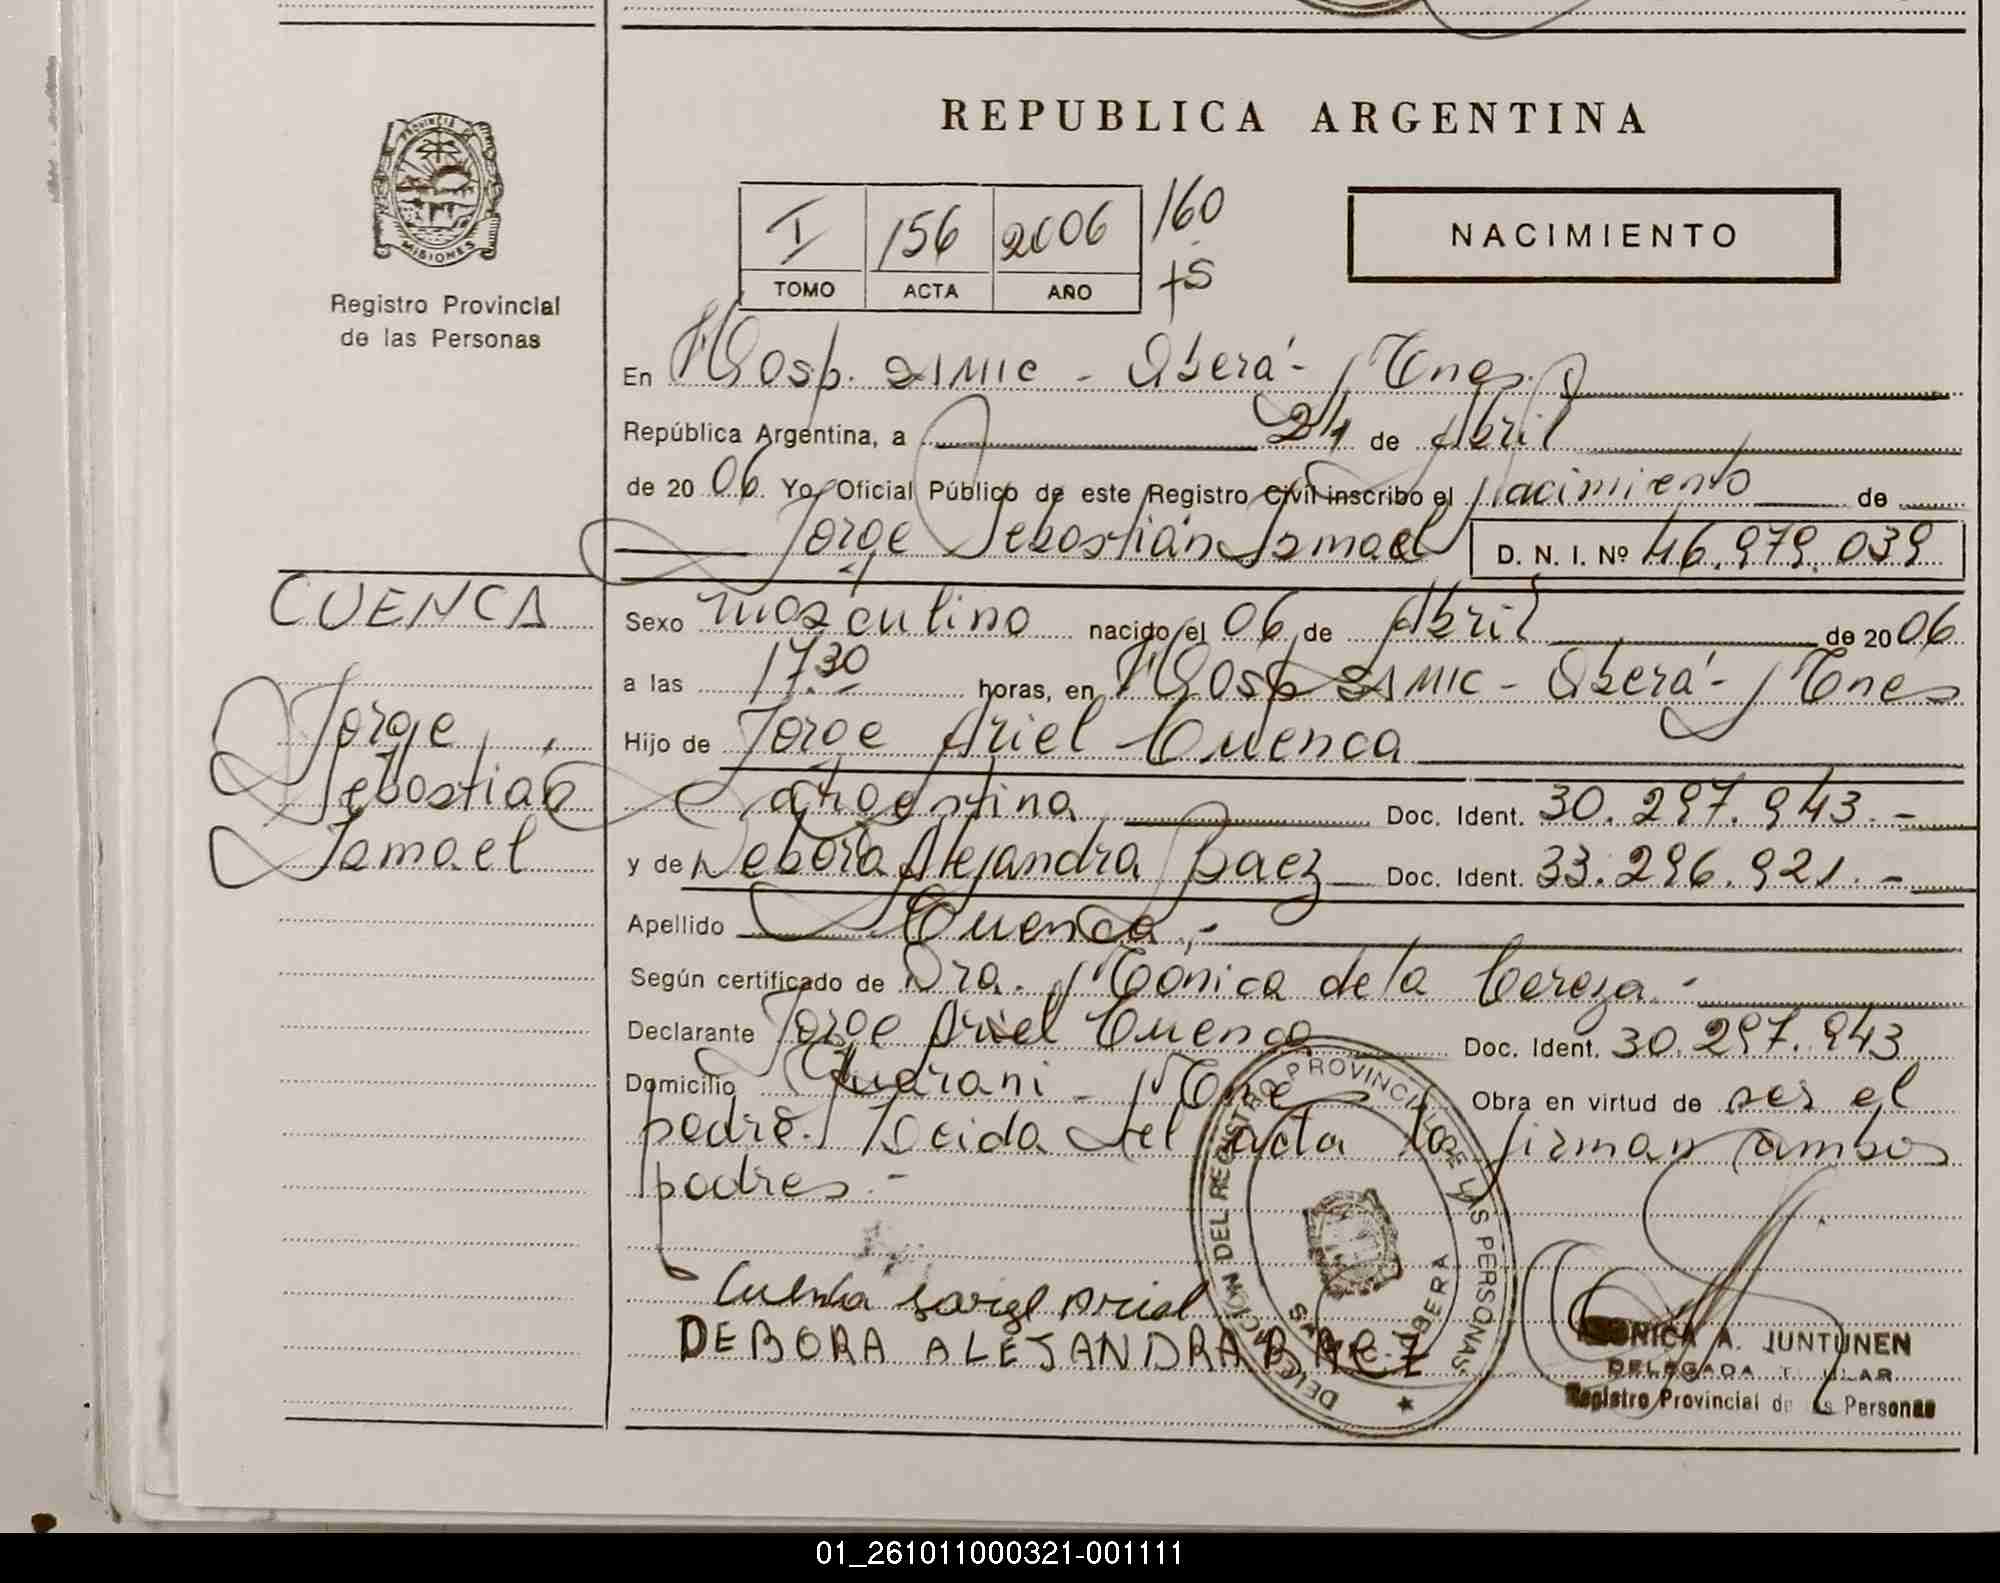 REPUBLICA ARGENTINA
PROVINCIA DE
MISIONES
Registro Provincial
de las Personas
I 156 2006 160
TOMO ACTA AÑO +S
NACIMIENTO
En Hosp. SAMIC - Oberá - Mnes.
República Argentina, a 21 de Abril
de 2006. Yo, Oficial Público de este Registro Civil inscribo el Nacimiento de
Jorge Sebastián Ismael D. N. I. Nº 46.979.039
CUENCA
Jorge
Sebastián
Ismael
Sexo masculino nacido el 06 de Abril de 2006
a las 17.30 horas, en Hosp SAMIC - Oberá - Mnes
Hijo de Jorge Ariel Cuenca
argentina Doc. Ident. 30.297.943.-
y de Debora Alejandra Baez Doc. Ident. 33.296.921.-
Apellido Cuenca,-
Según certificado de Dra. Mónica de la Cereza.-
Declarante Jorge Ariel Cuenca Doc. Ident. 30.297.943
Domicilio Guarani - Mnes Obra en virtud de ser el
padre. Leida del acta la firman ambos
padres.-
Cuenca Jorge Ariel
DEBORA ALEJANDRA BAEZ
DELEGACION DEL REGISTRO PROVINCIAL DE LAS PERSONAS
OBERA
MONICA A. JUNTUNEN
DELEGADA TITULAR
Registro Provincial de las Personas
01_261011000321-001111